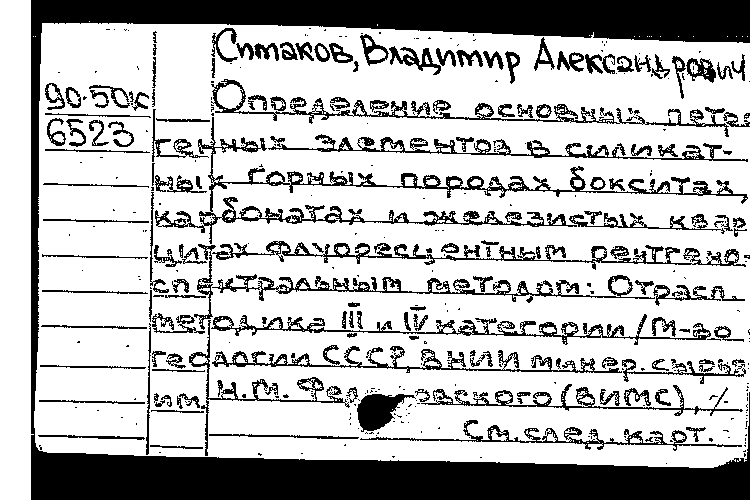 Ситаков, Владимир Александрович
90-50к
Определение основных петро-
6523
генных элементов в силикат-
ных горных породах, бокситах,
карбонатах и железистых квар
цитах флуоресцентным рентгено-
спектральным методом: Отрасл.
методика III и IV категории / М-во
геологии СССР, ВНИИ минер. сырья
им. Н.М. (ВИМС), /
См. след. карт.